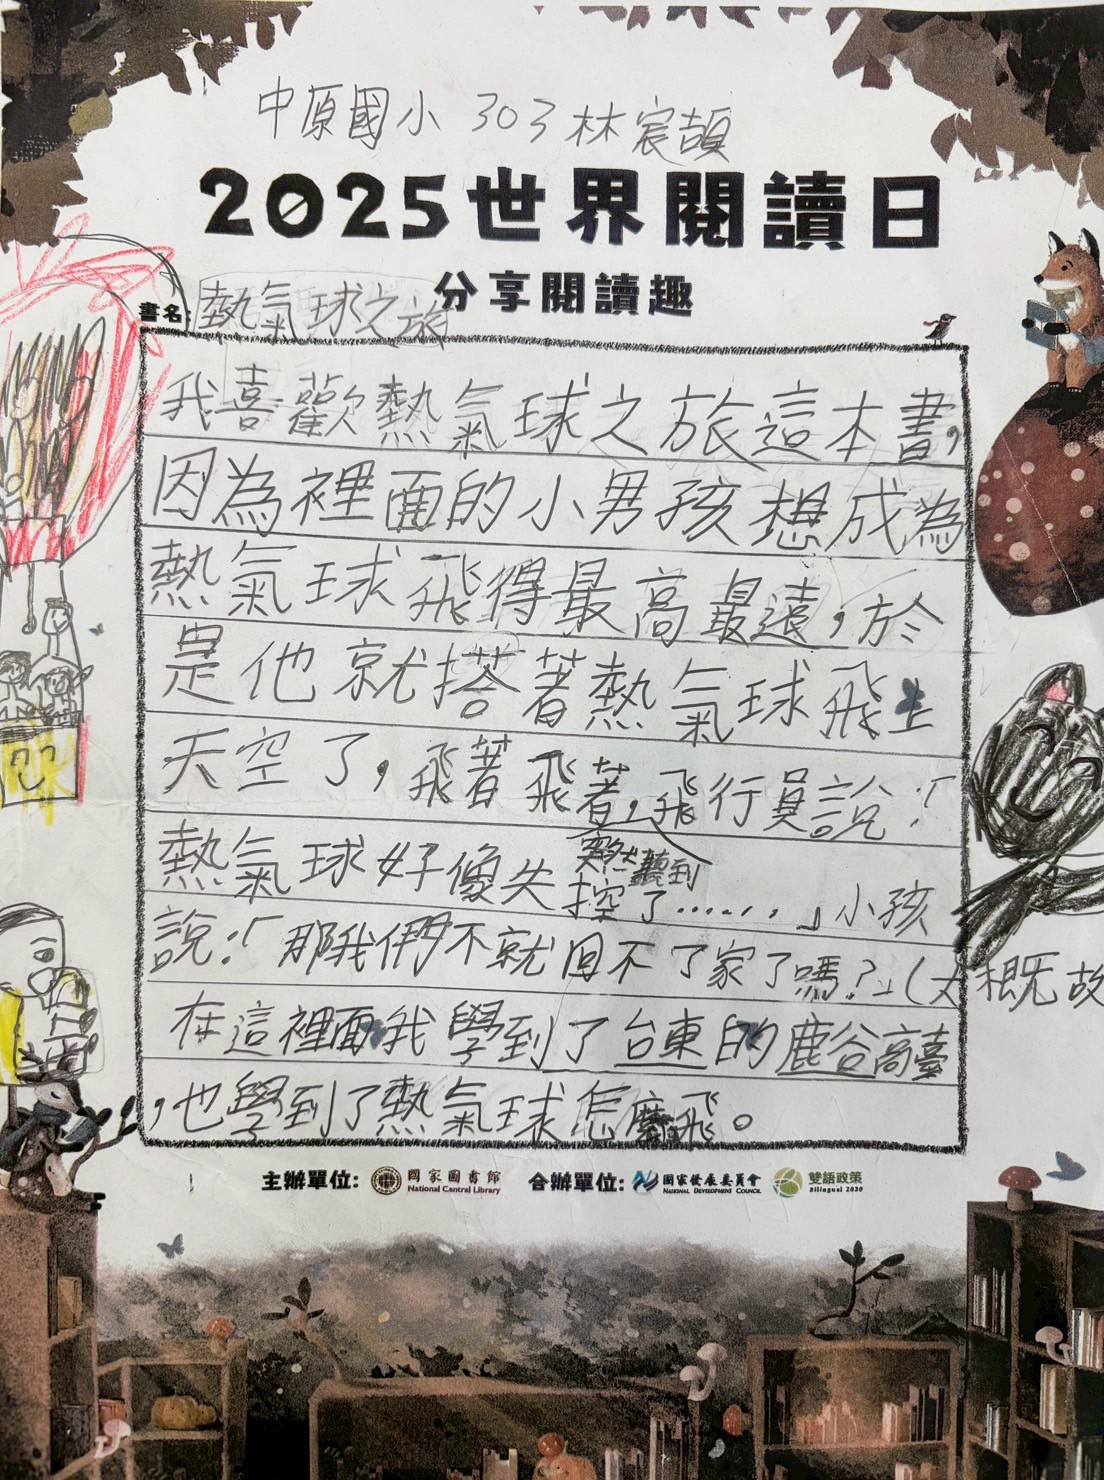 中原國小 303 林宸頡
2025世界閱讀日
分享閱讀趣
書名:熱氣球之旅
我喜歡熱氣球之旅這本書,
因為裡面的小男孩想成為
熱氣球飛得最高最遠,於
是他就搭著熱氣球飛上
天空了,飛著飛著,飛行員說:「
突然聽到
熱氣球好像失控了......」小孩
說:「那我們不就回不了家了嗎?」(大概故
在這裡面我學到了台東的鹿谷高臺
,也學到了熱氣球怎麼飛。
主辦單位: 國家圖書館 合辦單位: 國家發展委員會 雙語政策
National Central Library NATIONAL DEVELOPMENT COUNCIL Bilingual 2030